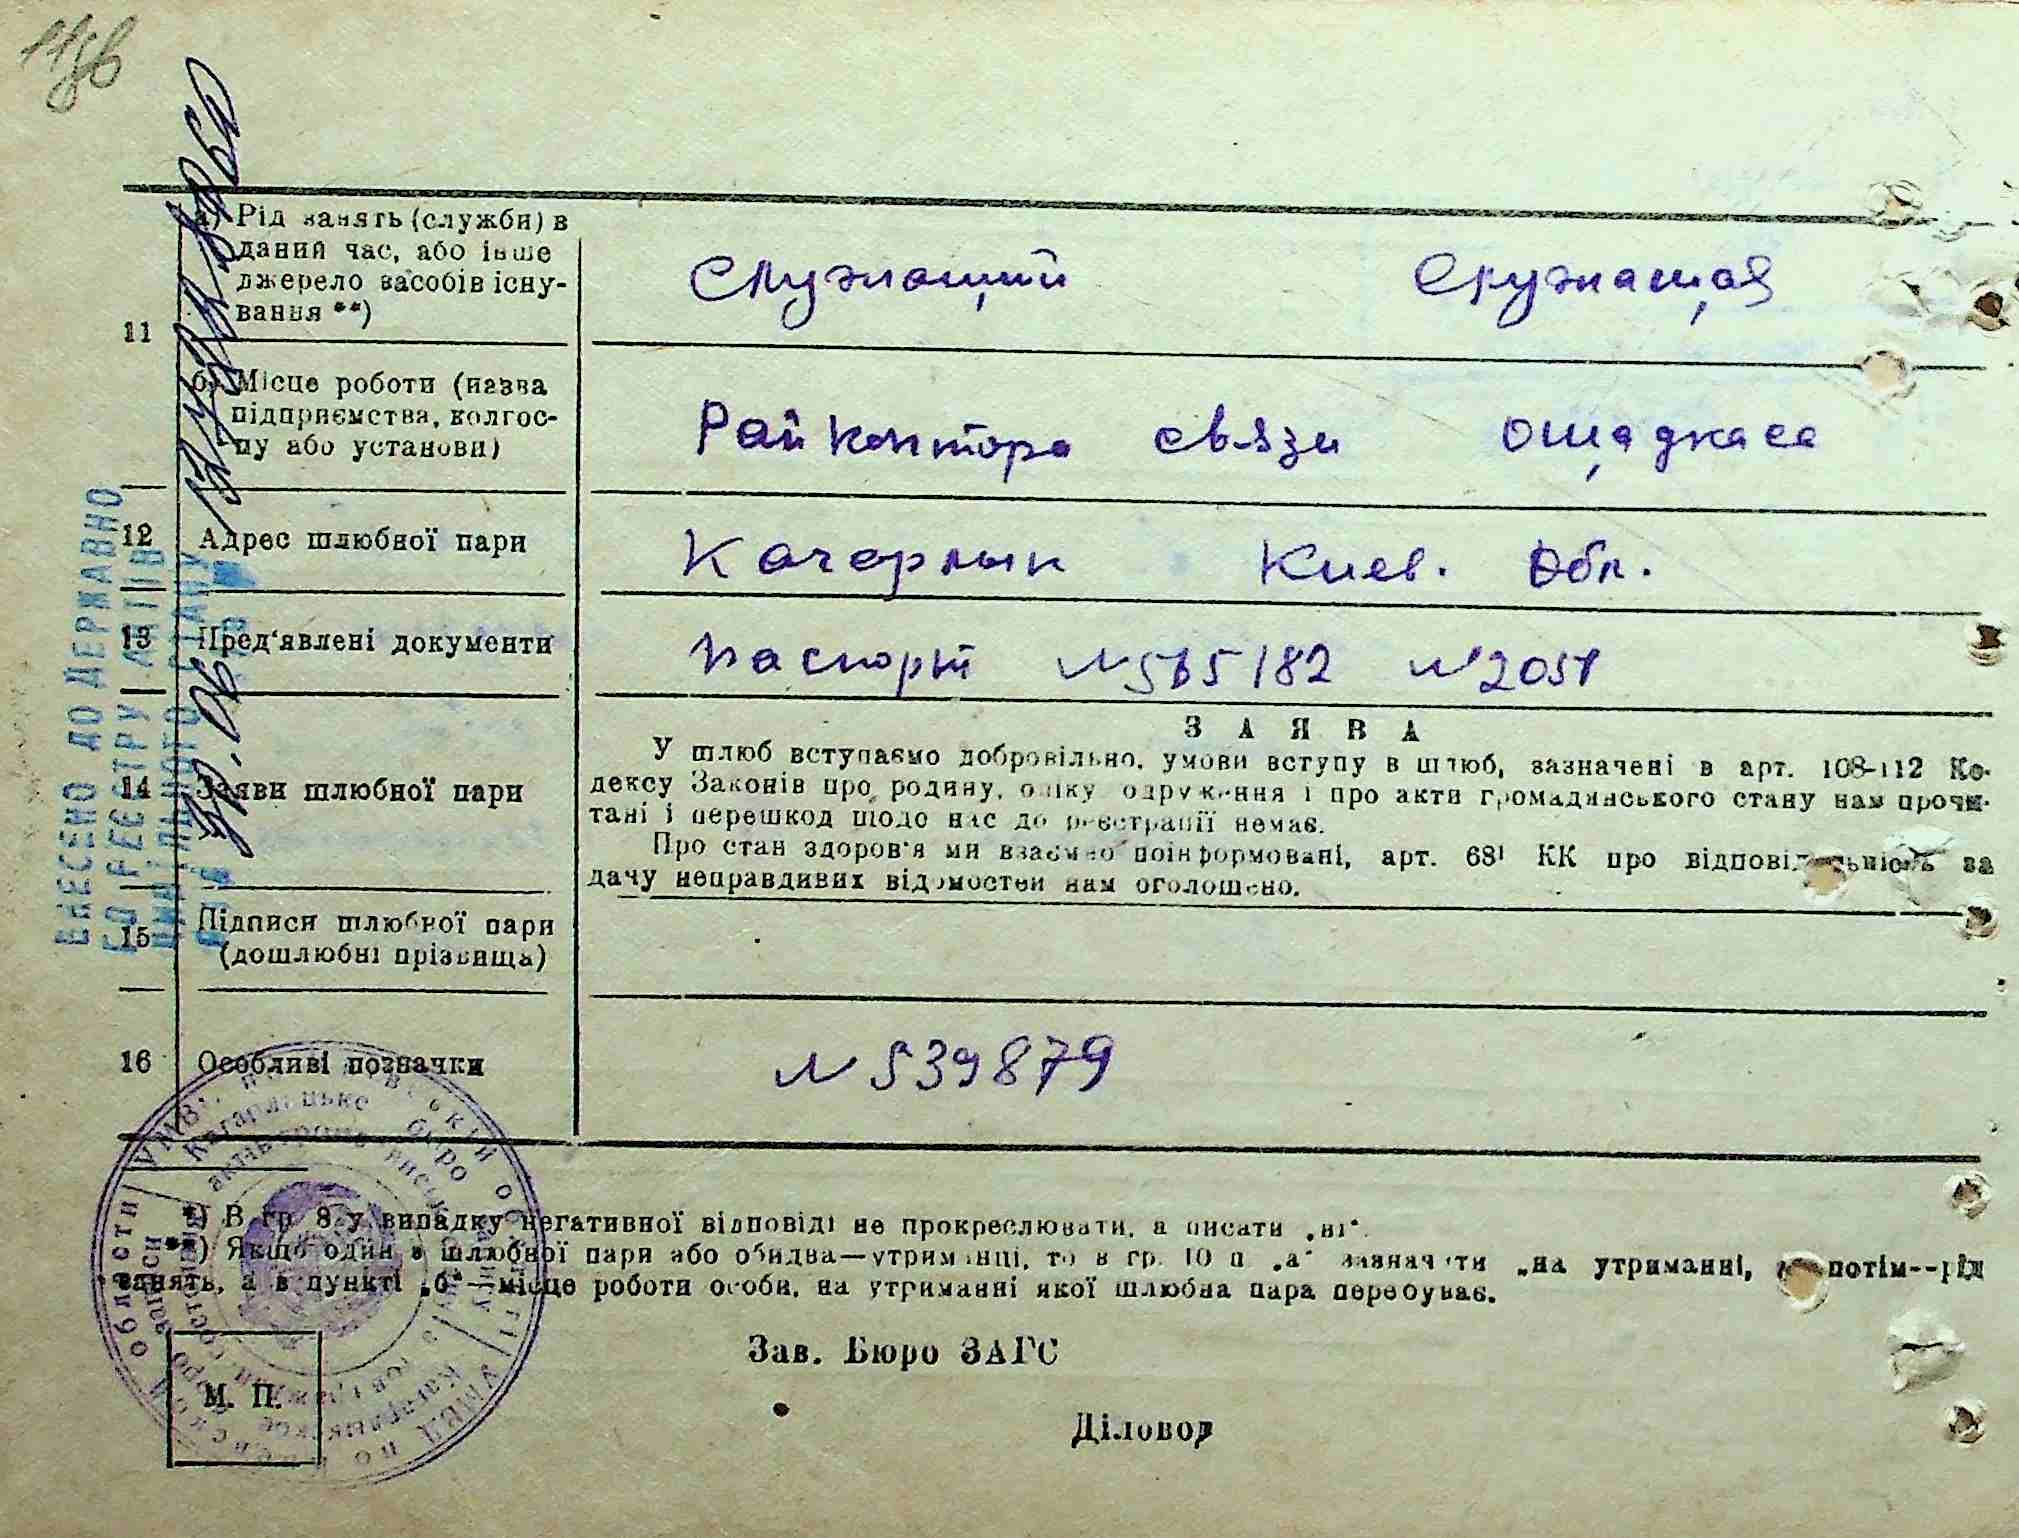 11
а) Рід занять (служби) в
даний час, або інше
джерело засобів існу-
вання **)
Служащий Служащая
б) Місце роботи (назва
підприємства, колгос-
пу або установи)
Райконтора связи ощадкаса
12 Адрес шлюбної пари
Качарлык Киев. Обл.
13 Пред'явлені документи
паспорт №
14 Заяви шлюбної пари
ЗАЯВА
У шлюб вступаємо добровільно, умови вступу в шлюб, зазначені в арт. 108-112 Ко-
дексу Законів про родину, опіку, одруження і про акти громадянського стану нам прочи-
тані і перешкод щодо нас до реєстрації немає.
Про стан здоров'я ми взаємно поінформовані, арт. 68¹ КК про відповідальність за
дачу неправдивих відомостей нам оголошено.
15 Підписи шлюбної пари
(дошлюбні прізвища)
16 Особливі позначки
№ 539879
*) В гр. 8 у випадку негативної відповіді не прокреслювати, а писати „ні".
**) Якщо один з шлюбної пари або обидва—утриманці, то в гр. 10 п. „а" зазначити „на утриманні, а потім--рід
занять, а в пункті „б"—місце роботи особи, на утриманні якої шлюбна пара перебуває.
Зав. Бюро ЗАГС
М. П.
Діловод
ВНЕСЕНО ДО ДЕРЖАВНО
ГО РЕЄСТРУ АКТІВ
ЦИВІЛЬНОГО СТАНУ